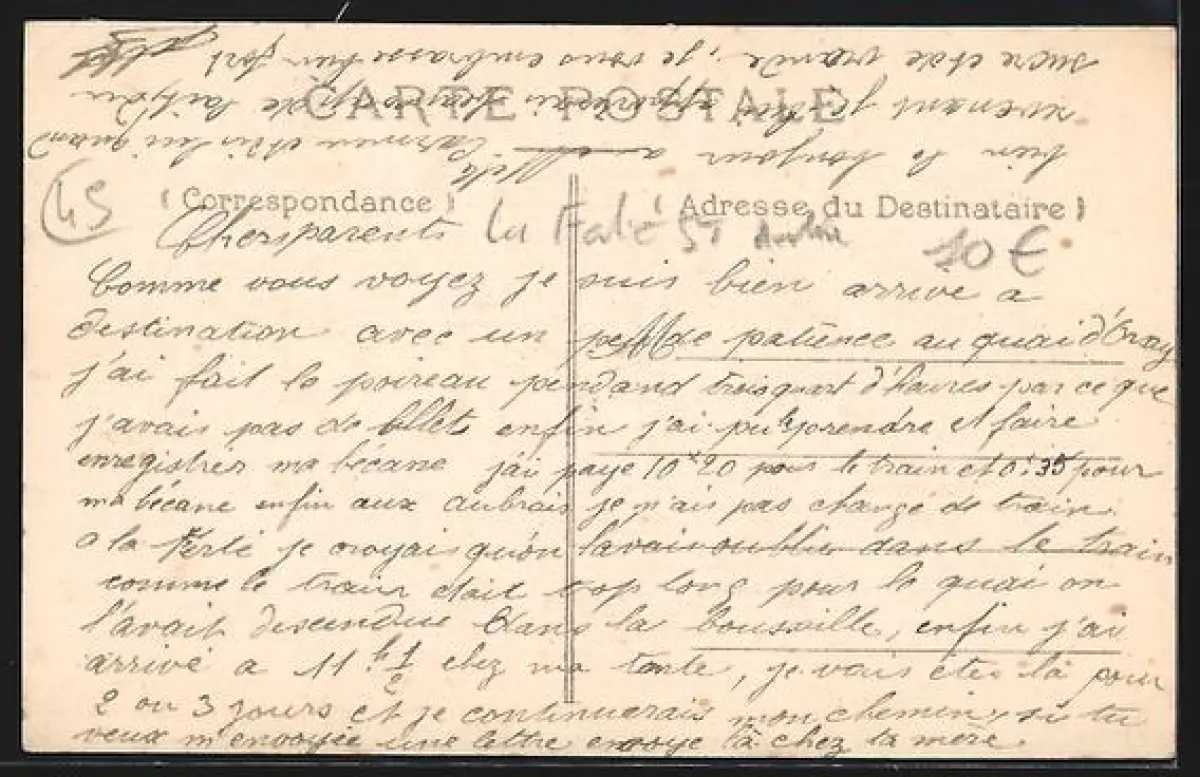 CARTE POSTALE
(Correspondance)
(Adresse du Destinataire)
45
La Ferté St Aubin
10 €
Chers parents
Comme vous voyez je suis bien arrivé a
destination avec un peu de patience au quai d'Orsay
j'ai fait le poireau pendand trois quart d'heures par ce que
j'avais pas de billets enfin j'ai pu prendre et faire
enregistrer ma bécane j'ai payé 10 20 pour le train et 0 35 pour
ma bécane enfin aux aubrais je n'ais pas changé de train
a la Ferté je croyais qu'on lavait oublier dans le train
comme le train était trop long pour le quai on
l'avait descendue dans la , enfin j'ai
arrivé a 11 h 1/2 chez ma tante, je vais etre la pour
2 ou 3 jours et je continuerais mon chemin, si tu
veux m'envoyée une lettre envoye la chez ta mere.
bien le bonjour a Carmen et dis lui quand
revenant je lui de
sucre et de viande, je vous embrasse bien fort